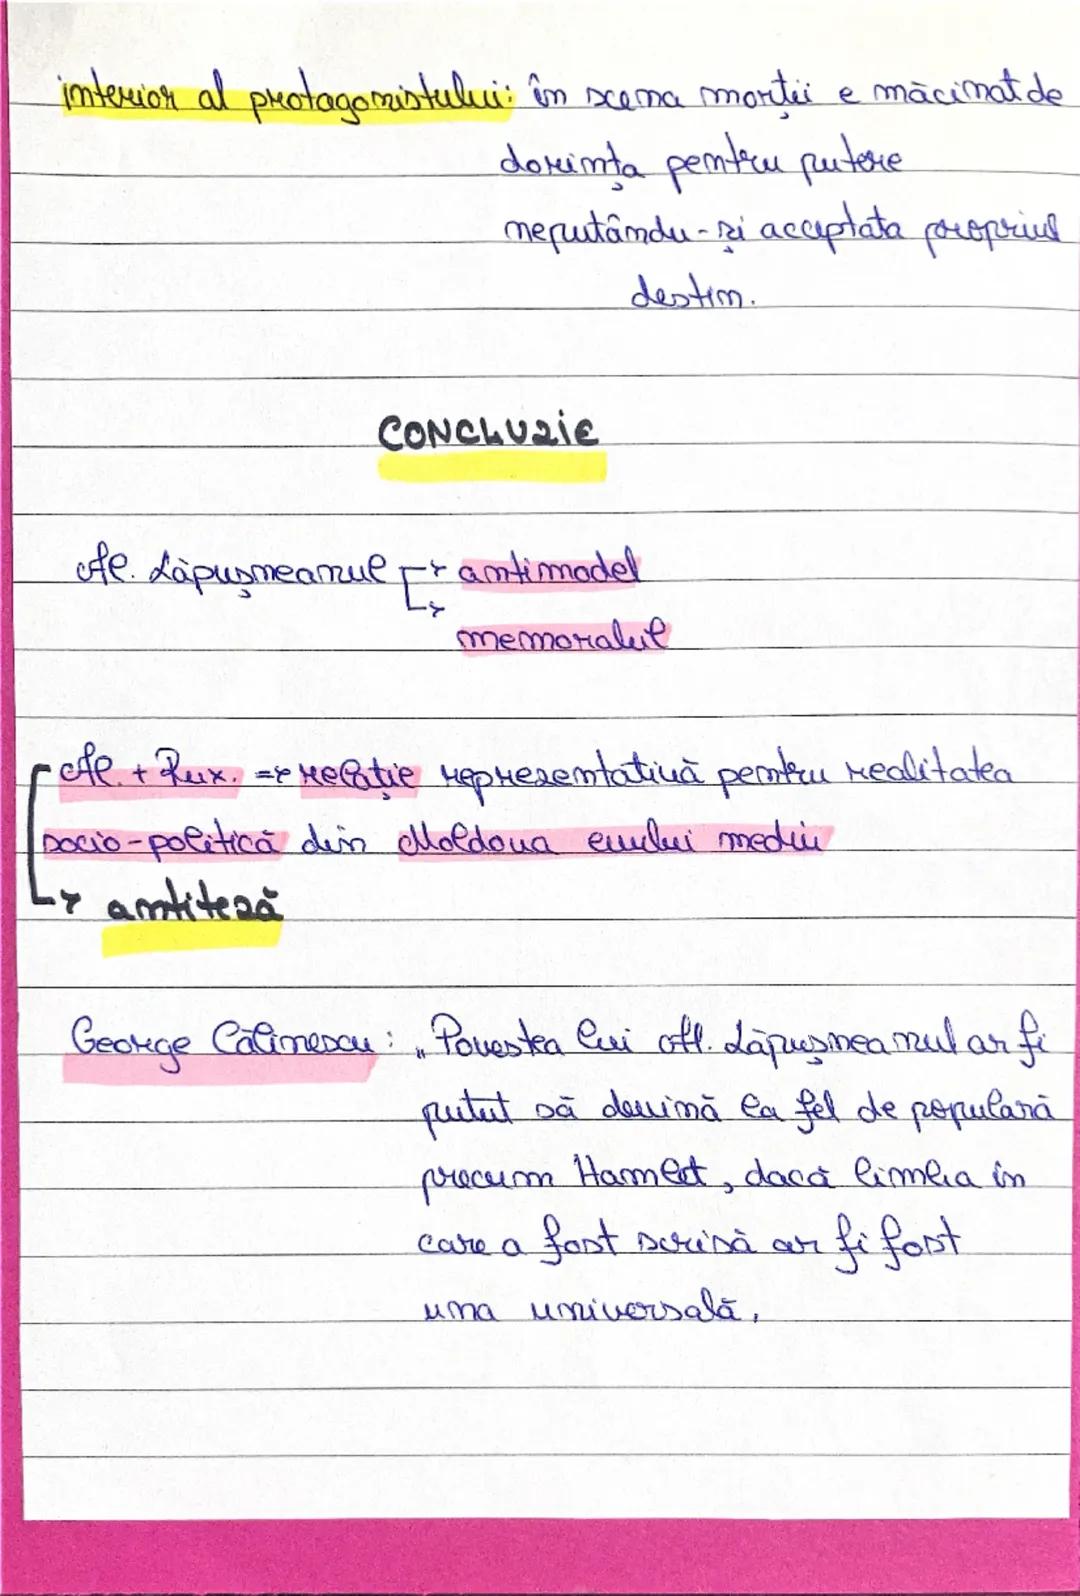 interior al protagonistului: în scena morții e măcinat de
dorința pentru putere
neputându-și acceptata propriul
destin.
CONCLUZIE
Al. Lăpușneanul → antimodel
→ memorabil
Al. + Rux. => relație reprezentativă pentru realitatea
socio-politică din Moldova evului mediu
→ antiteză
George Călinescu: „Povestea lui Al. Lăpușneanul ar fi
putut să devină la fel de populară
precum Hamlet, dacă limba în
care a fost scrisă ar fi fost
una universală,